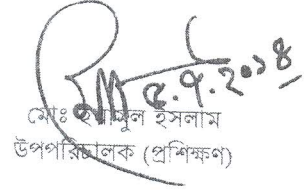 ৫.৭.২০১৪
মোঃ ইসলাম
উপপরিচালক (প্রশিক্ষণ)